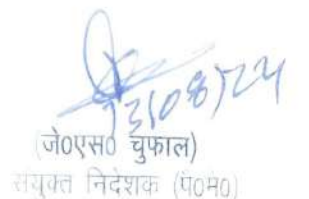 13/08/24
(जे०एस० चुफाल)
संयुक्त निदेशक (प०म०)